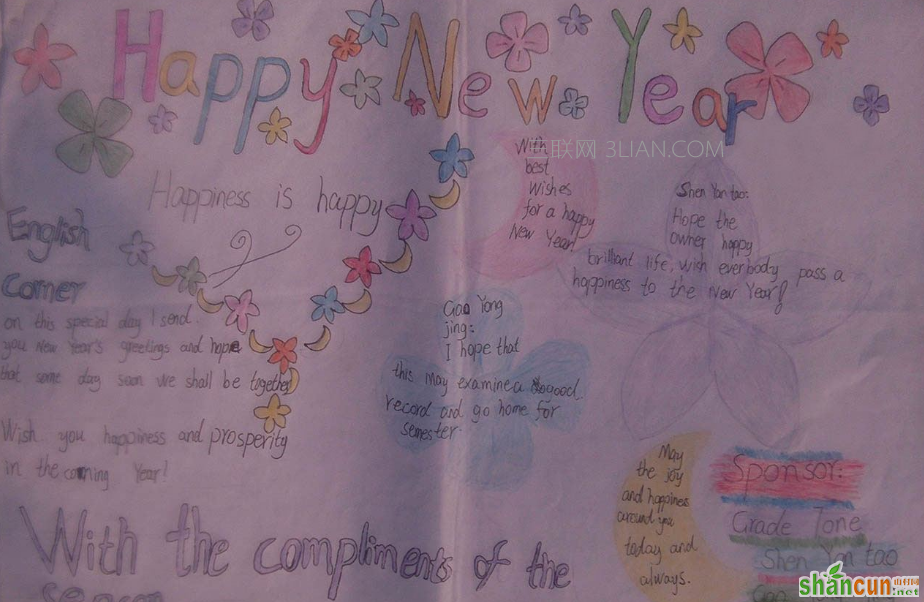 Happy New Year
With
best
wishes
for a happy
New Year!
三联网 3LIAN.COM
Happiness is happy
Shen Yan tao:
Hope the
owner happy
brilliant life, wish everbody pass a
happiness to the New Year!
English
Corner
on this special day I send
you New Year's greetings and hope
that some day soon we shall be together
Wish you happiness and prosperity
in the coming Year!
Gao Yong
jing:
I hope that
this may examine a good
record and go home for
semester.
May
the joy
and happiness
around you
today and
always.
Sponsor:
Grade Tone
Shen Yan tao
With the compliments of the
season
shancun
.net